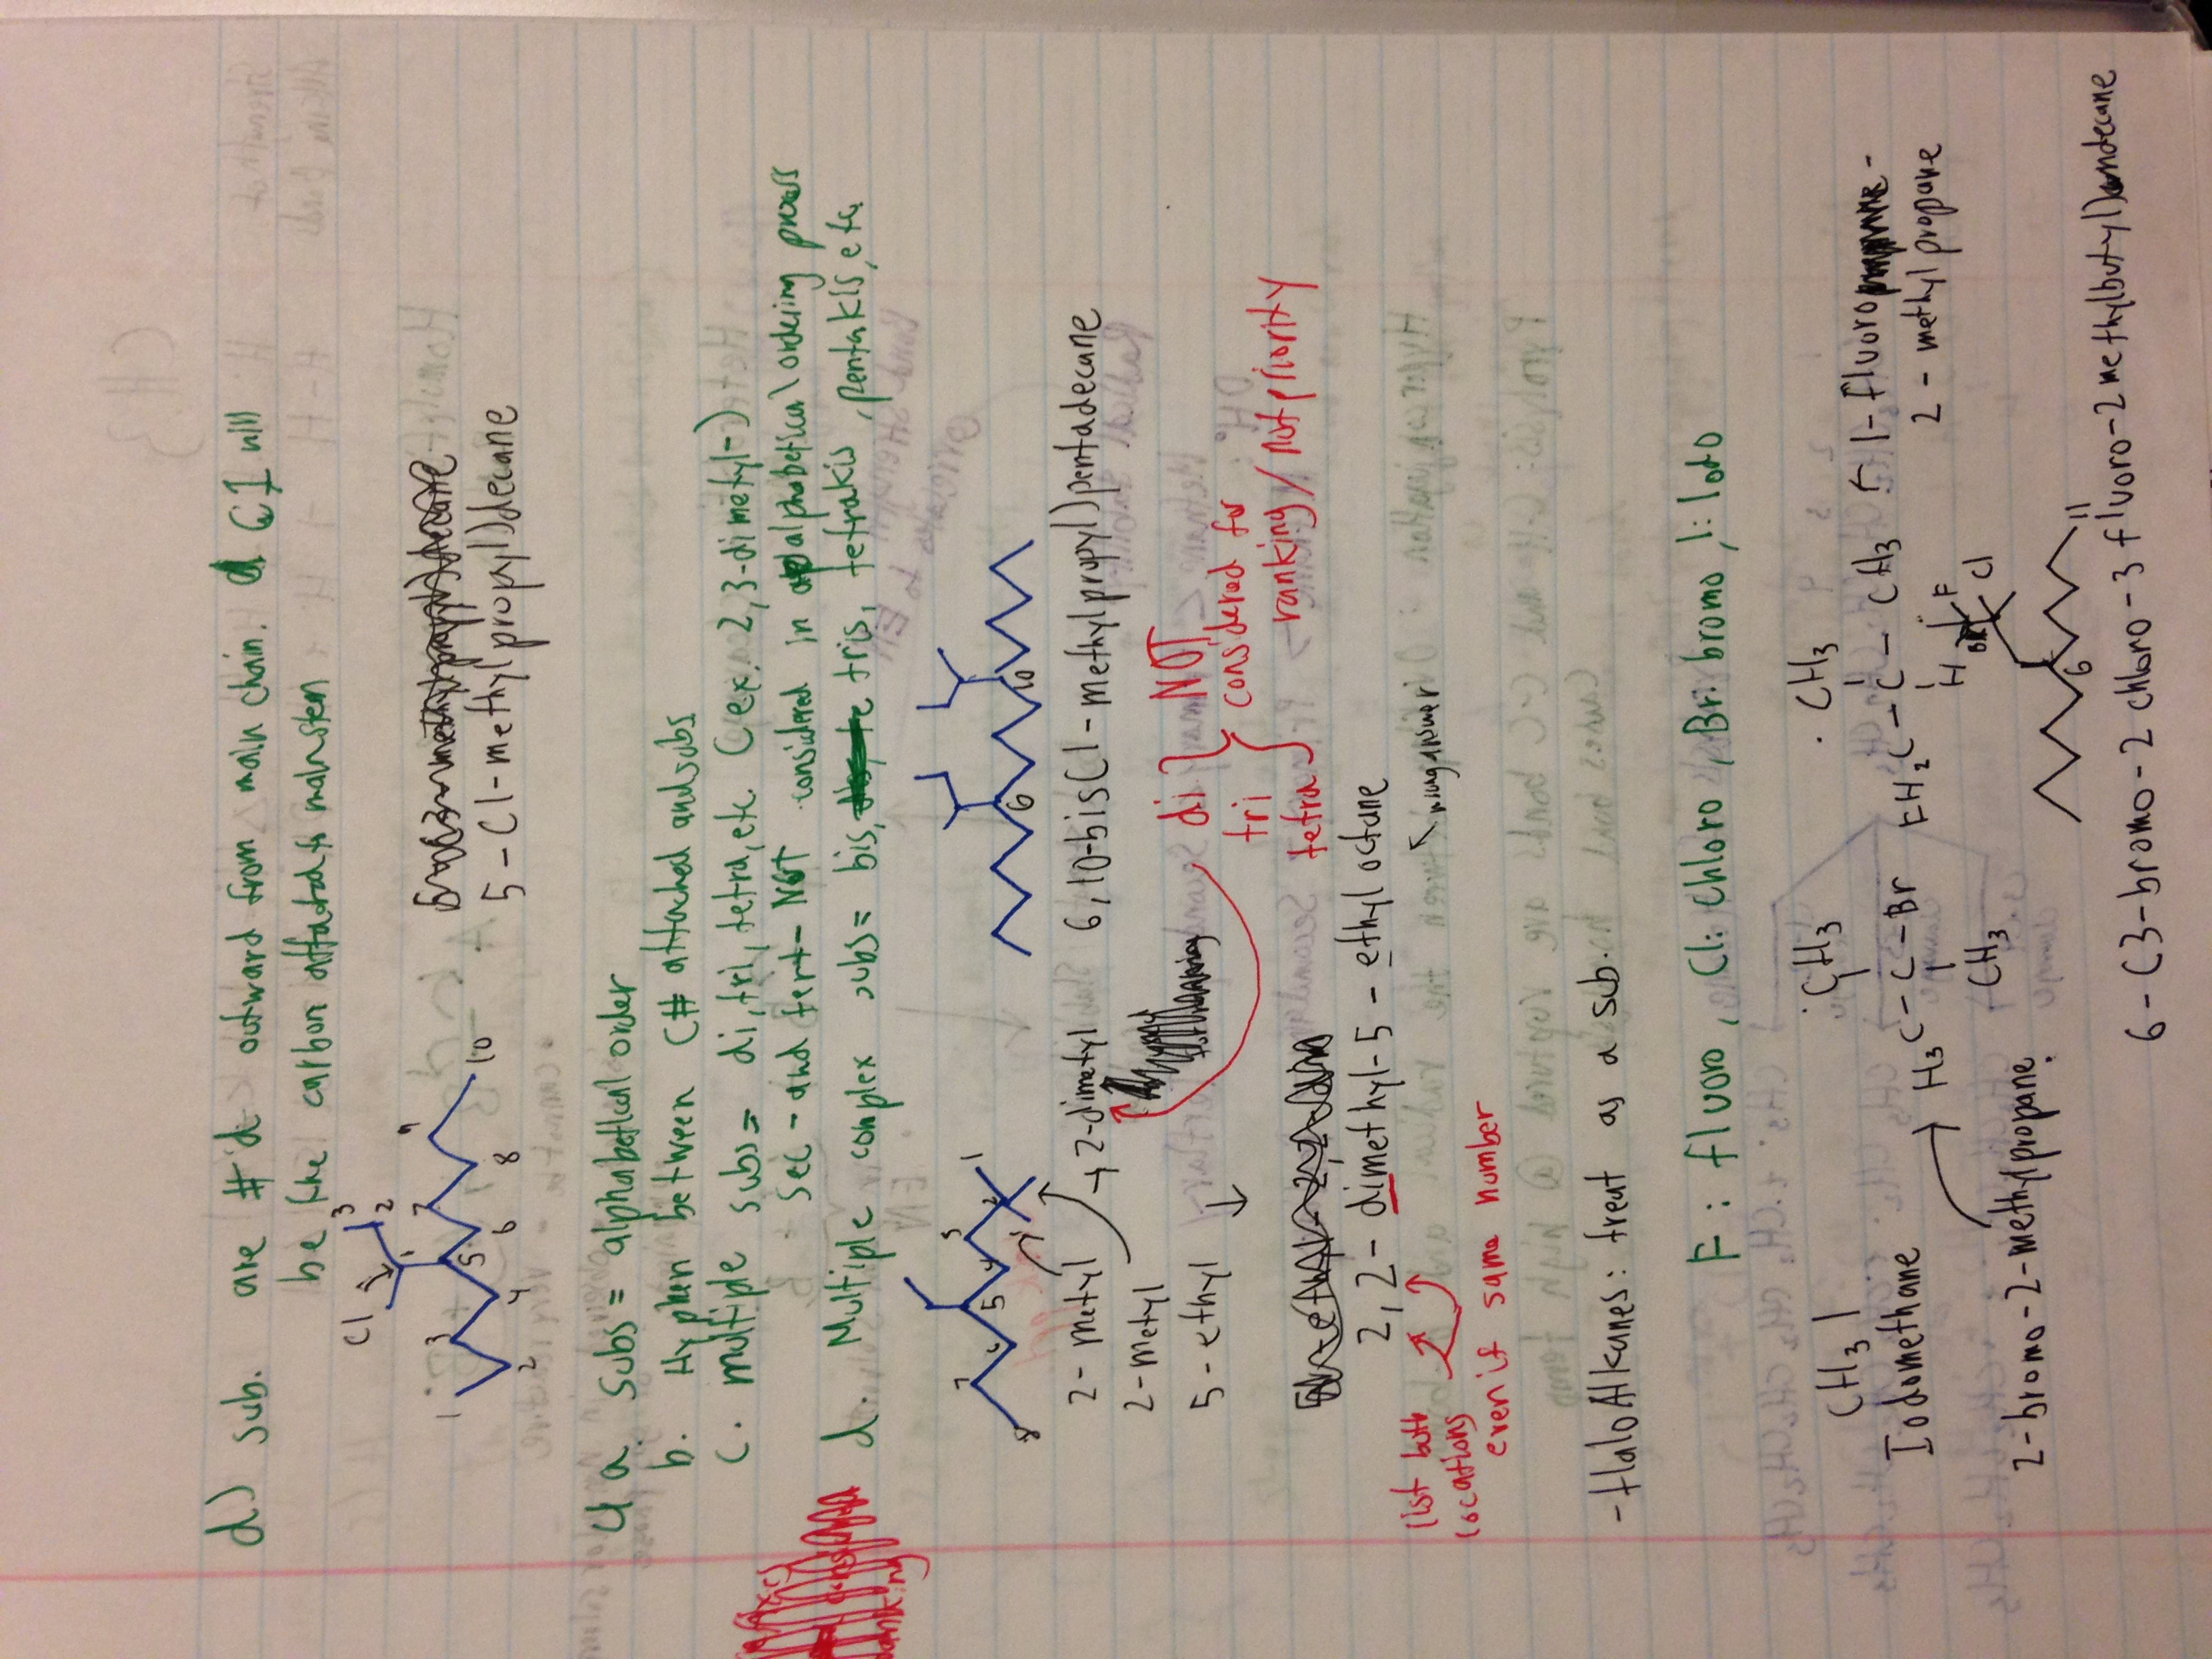 d) sub. are #'d outward from main chain. C1 will
be the carbon attached to main stem
Cl
3
2
1
1 2 3 4 5 6 7 8 9 10
5-(1-methylpropyl)decane
4 a. subs = alphabetical order
b. Hyphen between C# attached and subs
c. multiple subs = di, tri, tetra, etc (ex. 2,3-dimetyl-)
sec- and tert- NOT considered in alphabetical ordering process
d. Multiple complex subs = bis, tris, tetrakis, pentakis, etc.
8 7 6 5 4 3 2 1
6 10
2-metyl → 2-dimetyl
2-metyl
5-ethyl
6,10-bis(1-methylpropyl)pentadecane
di
tri
tetra
NOT
considered for
ranking / not priority
2,2-dimethyl-5-ethyl octane
wrong answer
list both
locations
even if same number
- HaloAlkanes: treat as a sub.
F: fluoro, Cl: chloro, Br: bromo, I: Iodo
CH3I
Iodomethane
CH3
H3C-C-Br
CH3
2-bromo-2-methylpropane.
CH3
FH2C-C-CH3
H
1-fluoro-
2-methyl propane
H F
Br Cl
6 11
6-(3-bromo-2 chloro-3 fluoro-2methylbutyl)undecane